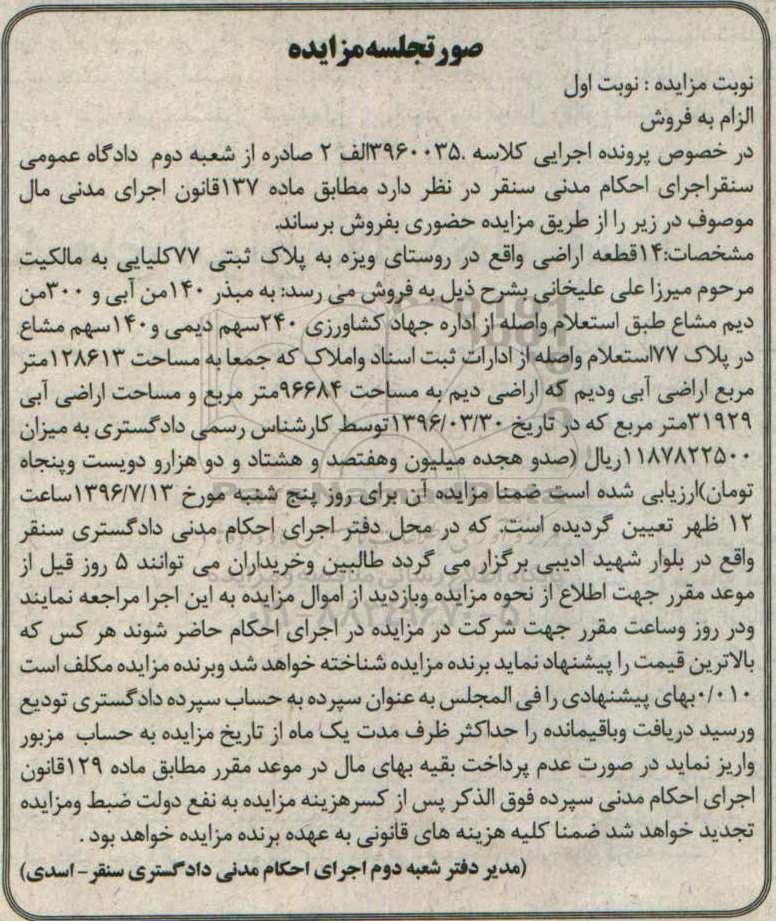 صورتجلسه مزایده
نوبت مزایده : نوبت اول
الزام به فروش
در خصوص پرونده اجرایی کلاسه ۳۹۶۰۰۳۵.الف ۲ صادره از شعبه دوم دادگاه عمومی
سنقراجرای احکام مدنی سنقر در نظر دارد مطابق ماده ۱۳۷قانون اجرای مدنی مال
موصوف در زیر را از طریق مزایده حضوری بفروش برساند.
مشخصات:۱۴قطعه اراضی واقع در روستای ویزه به پلاک ثبتی ۷۷کلیایی به مالکیت
مرحوم میرزا علی علیخانی بشرح ذیل به فروش می رسد: به مبذر ۱۴۰من آبی و ۳۰۰من
دیم مشاع طبق استعلام واصله از اداره جهاد کشاورزی ۲۴۰سهم دیمی و۱۴۰سهم مشاع
در پلاک ۷۷استعلام واصله از ادارات ثبت اسناد واملاک که جمعا به مساحت ۱۲۸۶۱۳متر
مربع اراضی آبی ودیم که اراضی دیم به مساحت ۹۶۶۸۴متر مربع و مساحت اراضی آبی
۳۱۹۲۹متر مربع که در تاریخ ۱۳۹۶/۰۳/۳۰توسط کارشناس رسمی دادگستری به میزان
۱۱۸۷۸۲۲۵۰۰ریال (صدو هجده میلیون وهفتصد و هشتاد و دو هزارو دویست وپنجاه
تومان)ارزیابی شده است ضمنا مزایده آن برای روز پنج شنبه مورخ ۱۳۹۶/۷/۱۳ساعت
۱۲ ظهر تعیین گردیده است. که در محل دفتر اجرای احکام مدنی دادگستری سنقر
واقع در بلوار شهید ادیبی برگزار می گردد طالبین وخریداران می توانند ۵ روز قبل از
موعد مقرر جهت اطلاع از نحوه مزایده وبازدید از اموال مزایده به این اجرا مراجعه نمایند
ودر روز وساعت مقرر جهت شرکت در مزایده در اجرای احکام حاضر شوند هر کس که
بالاترین قیمت را پیشنهاد نماید برنده مزایده شناخته خواهد شد وبرنده مزایده مکلف است
۰/۰۱۰بهای پیشنهادی را فی المجلس به عنوان سپرده به حساب سپرده دادگستری تودیع
ورسید دریافت وباقیمانده را حداکثر ظرف مدت یک ماه از تاریخ مزایده به حساب مزبور
واریز نماید در صورت عدم پرداخت بقیه بهای مال در موعد مقرر مطابق ماده ۱۲۹قانون
اجرای احکام مدنی سپرده فوق الذکر پس از کسرهزینه مزایده به نفع دولت ضبط ومزایده
تجدید خواهد شد ضمنا کلیه هزینه های قانونی به عهده برنده مزایده خواهد بود .
(مدیر دفتر شعبه دوم اجرای احکام مدنی دادگستری سنقر- اسدی)